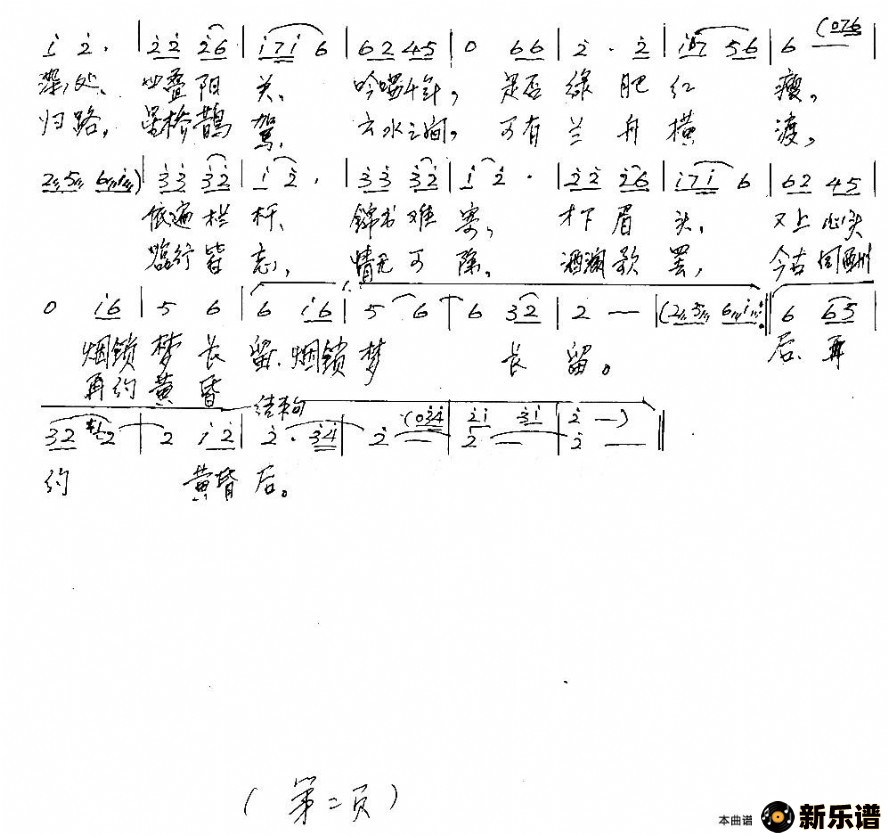 i 2 · | 2 2 2 6 | i 7 i 6 | 6 2 4 5 | 0 6 6 | 2 · 2 | i 0 7 5 6 | 6 (0 7 6 |
深处、 叠阳 关、 吟 年, 是否 绿 肥 红 瘦,
归路, 星桥鹊 驾, 云水之间, 可有 兰 舟 横 渡,
2 5 6 i) | 3 3 3 2 | i 2 · | 3 3 3 2 | i 2 · | 2 2 2 6 | i 7 i 6 | 6 2 4 5 |
依遍 栏 杆、 锦书 难 寄, 才下 眉 头, 又上 心头
临行 皆 忘, 情无 可 除, 酒阑 歌 罢, 今古 同酬
0 i 6 | 5 6 | 6 i 6 | 5 6 | 6 3 2 | 2 — | (2 5 6 i) :|| 6 6 5 |
烟锁 梦 长 留、烟锁 梦 长 留。 后、再
再约 黄 昏
结束句
3 2 2 | 2 i 2 | 2 · 3 4 | 2 · (0 3 4 | 2 i 3 i | 2 —) ||
2 — 2 —
约 黄昏 后。
(第二页)
本曲谱 新乐谱